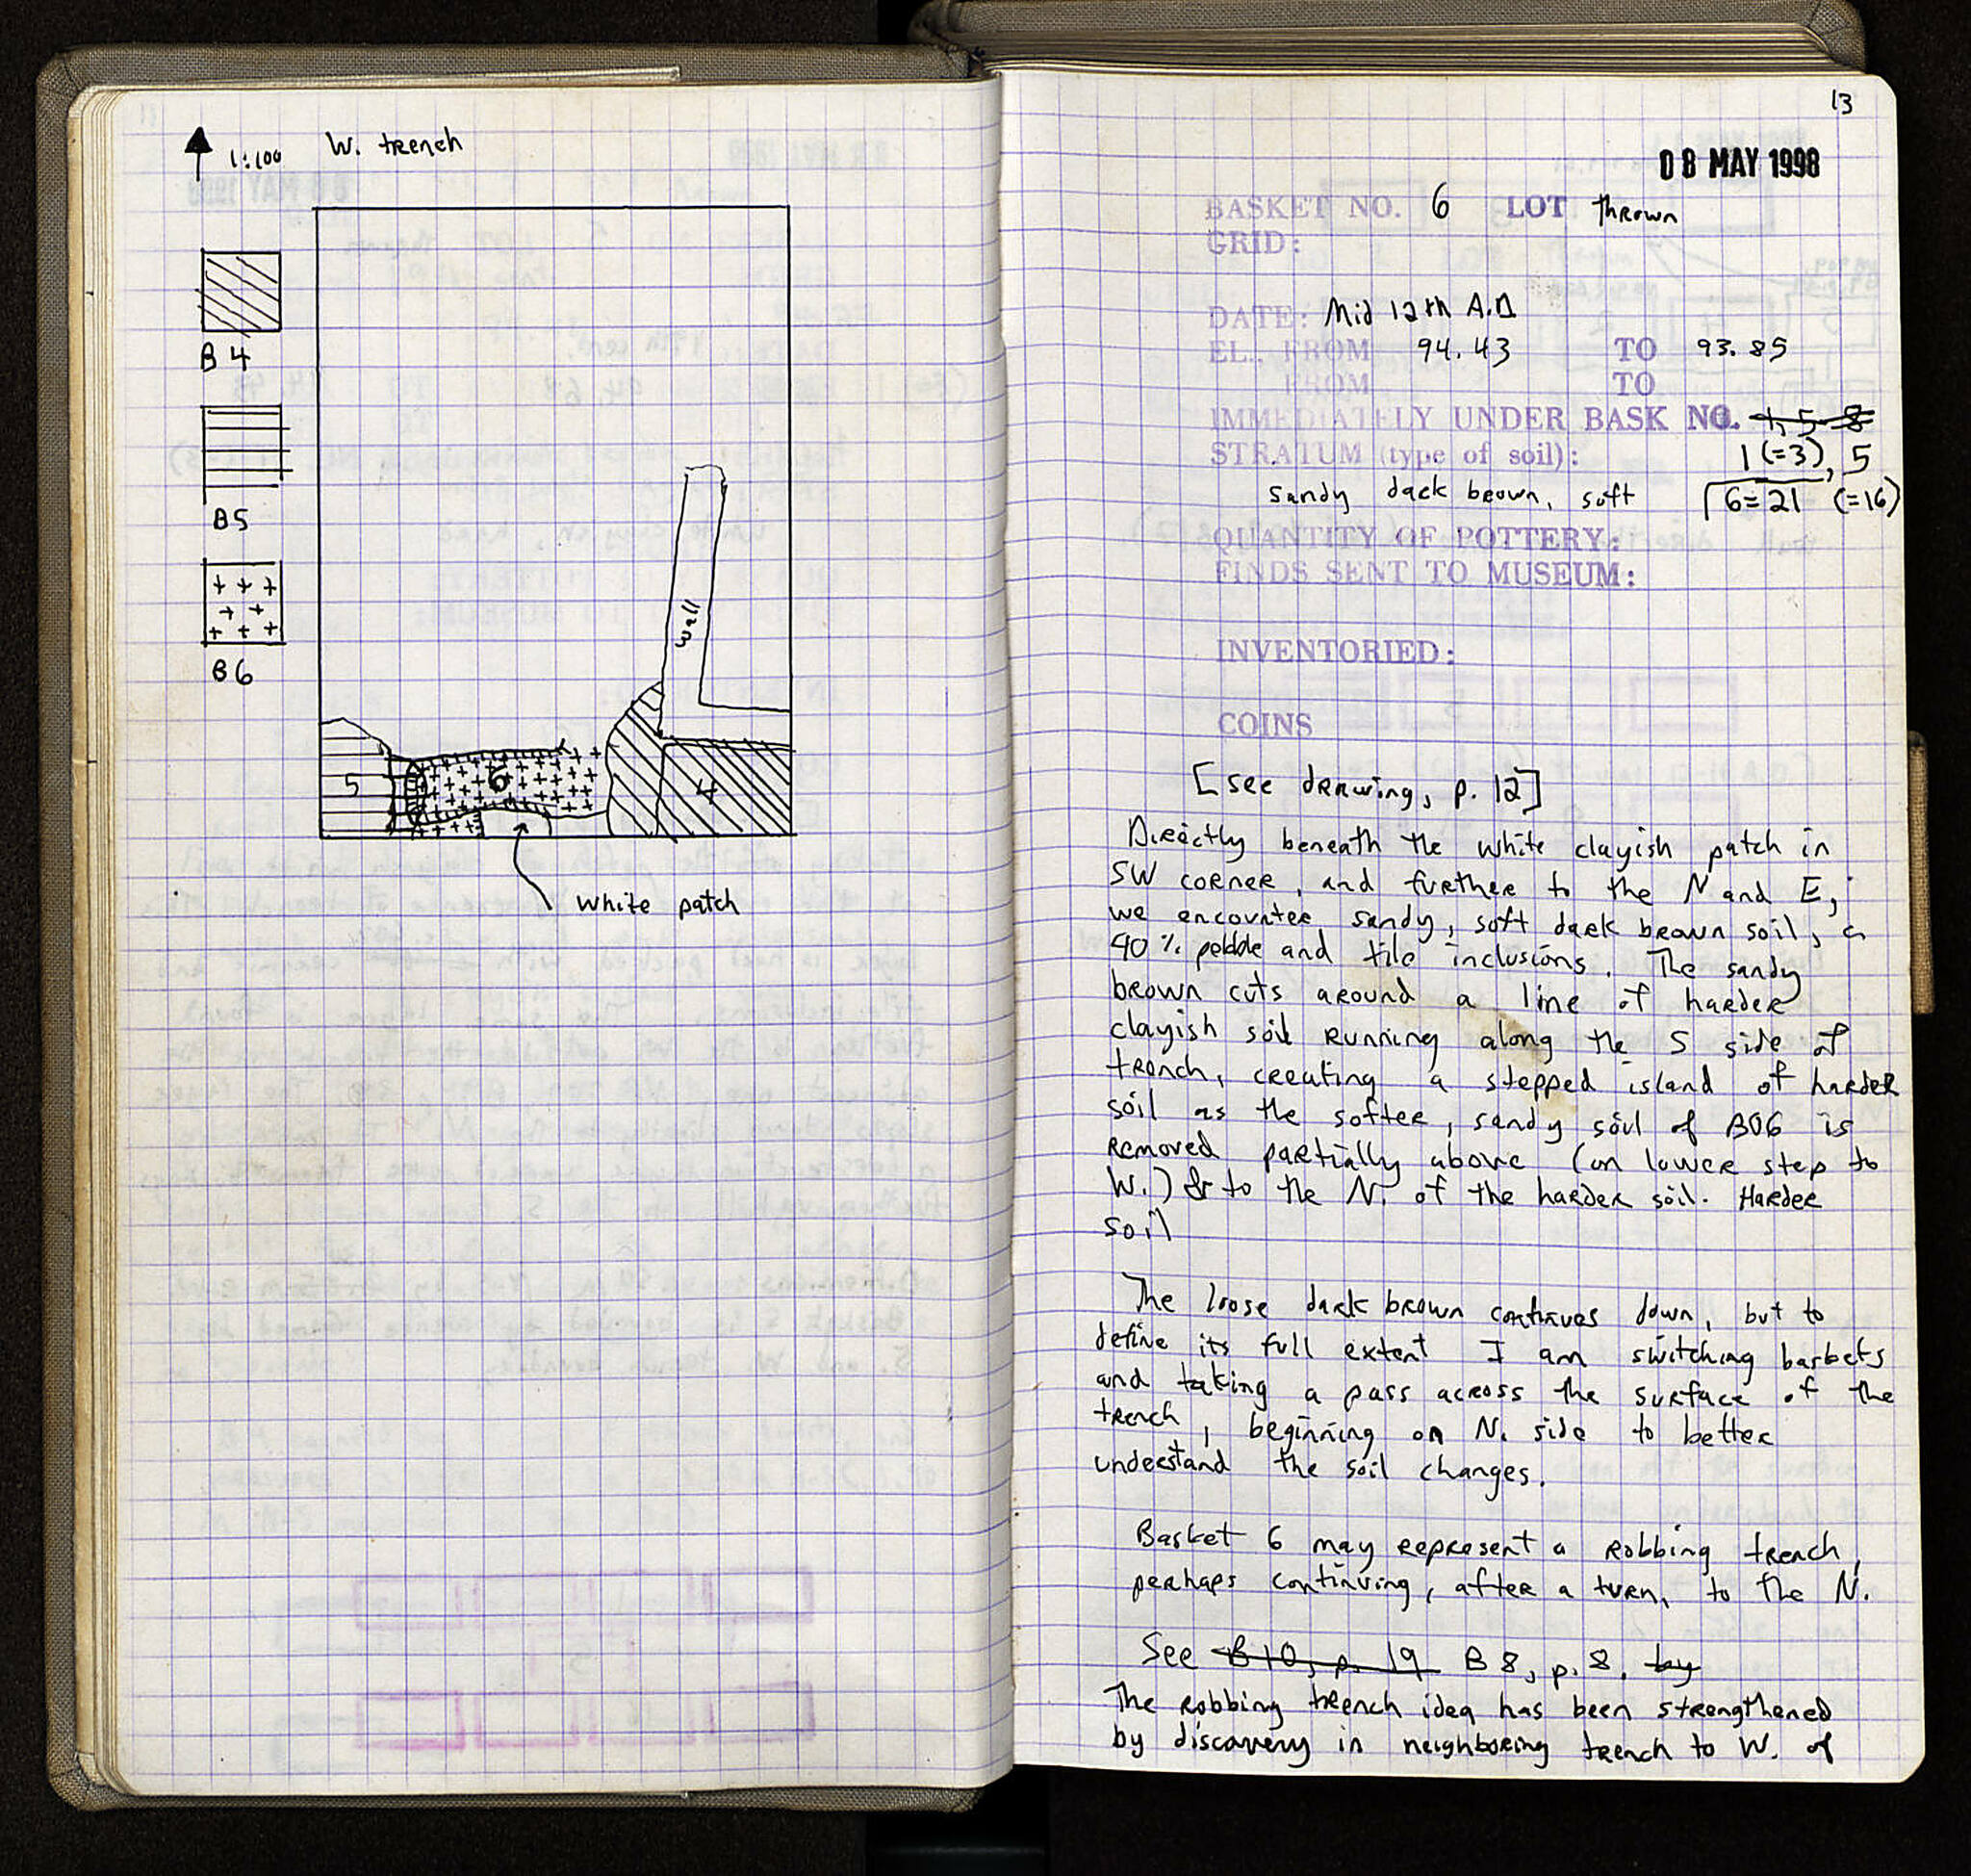 1:100 W. trench
B 4
B5
B6
wall
5
6
4
white patch
13
08 MAY 1998
BASKET NO. 6 LOT thrown
GRID:
DATE: Mid 12th A.D
EL. FROM 94.43 TO 93.85
FROM TO
IMMEDIATELY UNDER BASK NO. 4, 5 8
STRATUM (type of soil): 1 (=3), 5
sandy dark brown, soft 6=21 (=16)
QUANTITY OF POTTERY:
FINDS SENT TO MUSEUM:
INVENTORIED:
COINS
[see drawing, p. 12]
Directly beneath the white clayish patch in
SW corner, and further to the N and E,
we encounter sandy, soft dark brown soil,
40% pebble and tile inclusions. The sandy
brown cuts around a line of harder
clayish soil running along the S side of
trench, creating a stepped island of harder
soil as the softer, sandy soil of B06 is
removed partially above (on lower step to
W.) & to the N. of the harder soil. Harder
soil
The loose dark brown continues down, but to
define its full extent I am switching baskets
and taking a pass across the surface of the
trench, beginning on N. side to better
understand the soil changes.
Basket 6 may represent a robbing trench,
perhaps continuing, after a turn, to the N.
See B10, p. 19 B 8, p. 8. by
The robbing trench idea has been strengthened
by discovery in neighboring trench to W. of